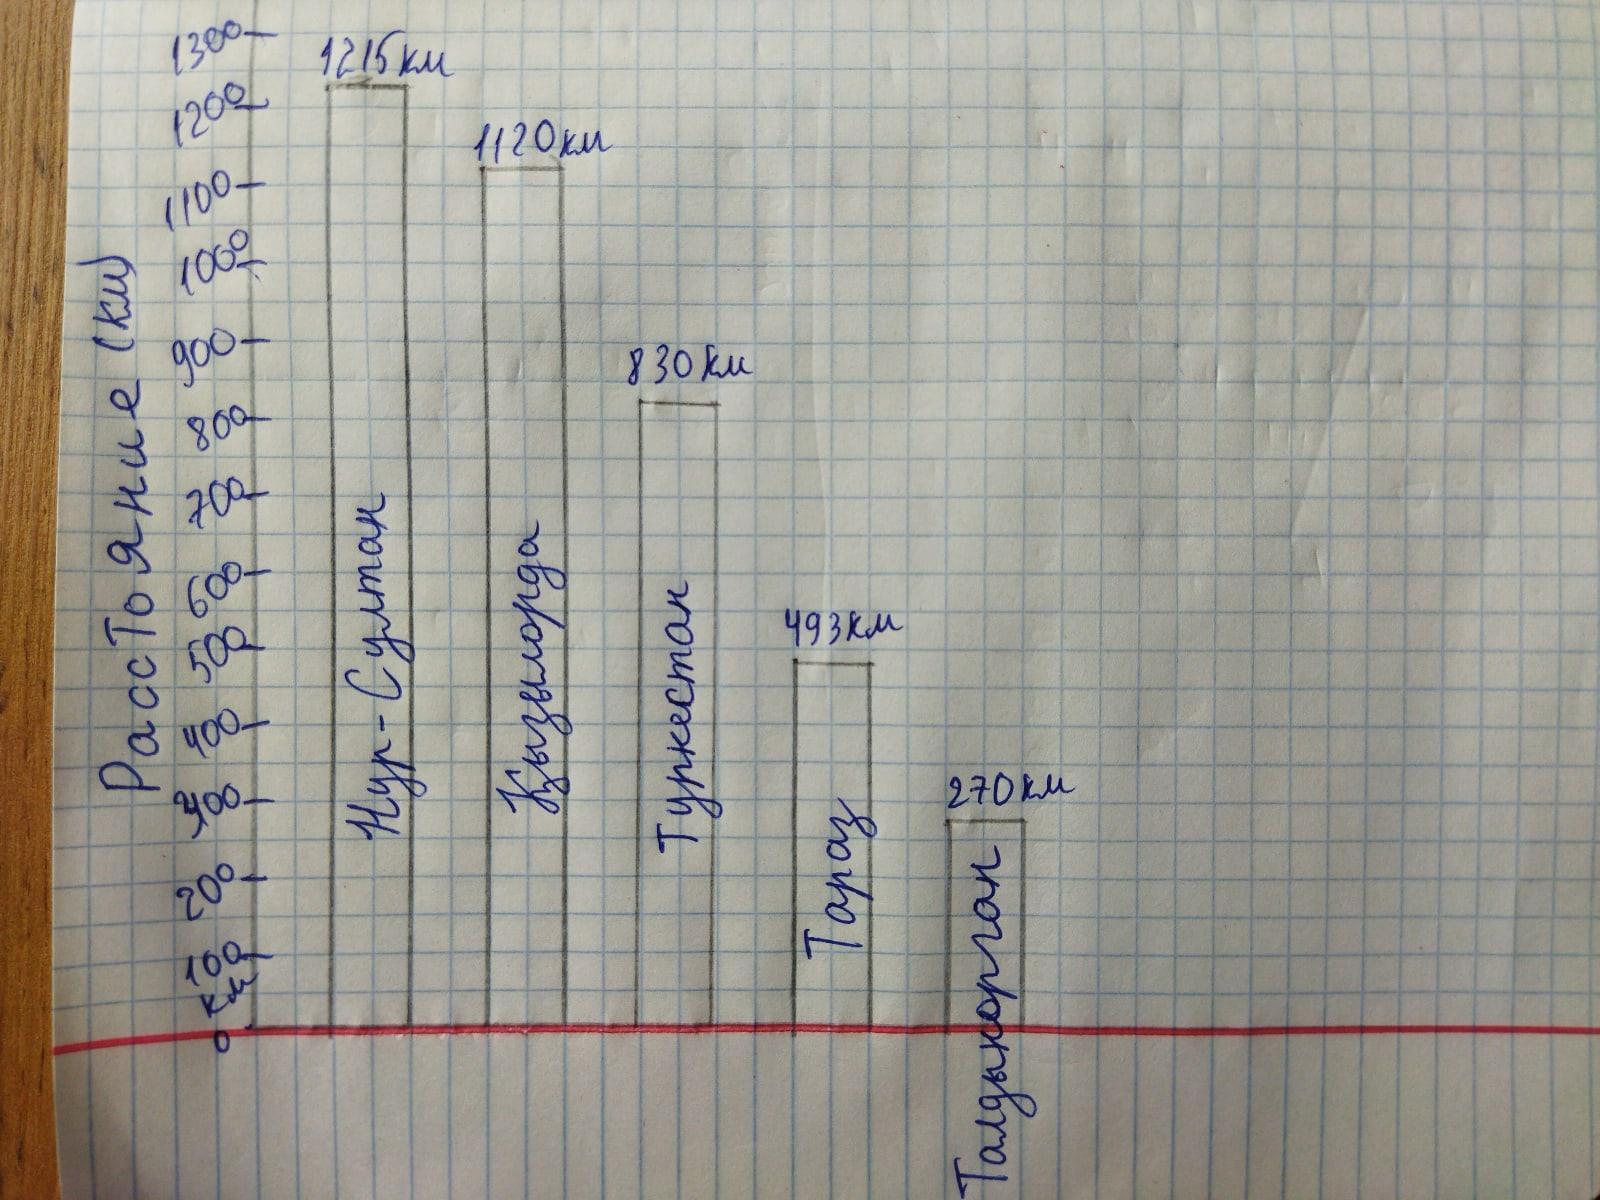 Расстояние (км)
1300
1200
1100
1000
900
800
700
600
500
400
300
200
100
0 км
1215 км
1120 км
830 км
493 км
270 км
Нур-Султан
Кызылорда
Туркестан
Тараз
Талдыкорган